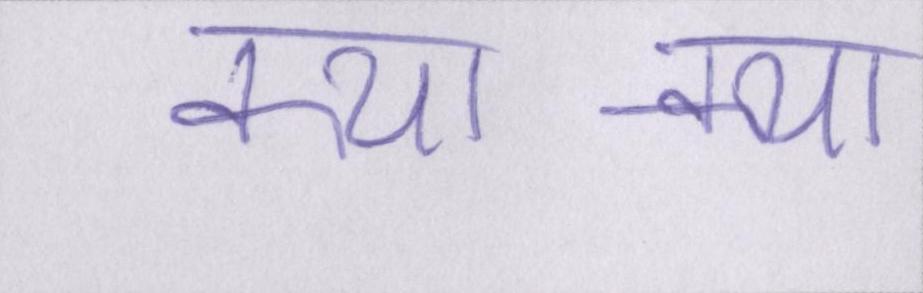 क्या -क्या